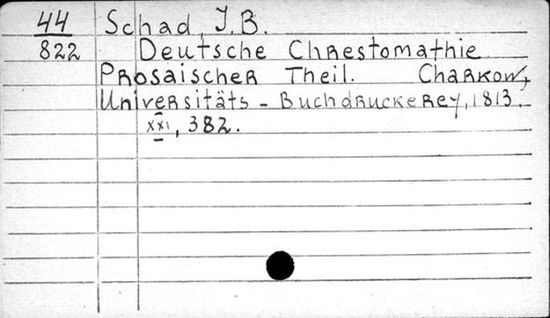 44 Schad, J.B.
822 Deutsche Chrestomathie
Prosaischer Theil. Charkow,
Universitäts - Buchdruckerey, 1813.
XXI, 382.